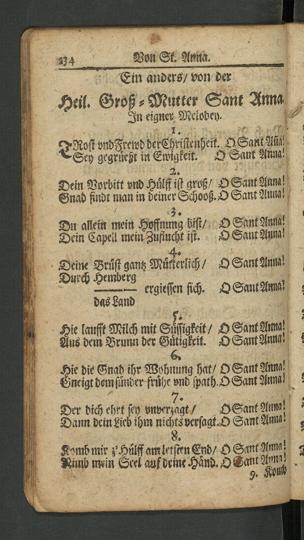 234 Von St. Anna.
Ein anders/ von der
Heil. Groß-Mutter Sant Anna
In eigner Melodey.
1.
TRost vnd Frewd der Christenheit. O Sant Anna!
Sey gegrüßt in Ewigkeit. O Sant Anna!
2.
Dein Vorbitt vnd Hülff ist groß/ O Sant Anna!
Gnad findt man in deiner Schooß. O Sant Anna!
3.
Du allein mein Hoffnung bist/ O Sant Anna!
Dein Capell mein Zuflucht ist. O Sant Anna!
4.
Deine Brüst gantz Mütterlich/ O Sant Anna!
Durch Hemberg
ergiessen sich. O Sant Anna!
das Land
5.
Hie laufft Milch mit Süssigkeit/ O Sant Anna!
Aus dem Brunn der Gütigkeit. O Sant Anna!
6.
Hie die Gnad ihr Wohnung hat/ O Sant Anna!
Gneigt dem sünder frühe vnd spath. O Sant Anna!
7.
Der dich ehrt sey vnverzagt/ O Sant Anna!
Dann dein Lieb ihm nichts versagt. O Sant Anna!
8.
Komb mir z'Hülff am letsten End/ O Sant Anna!
Nimb mein Seel auf deine Händ. O Sant Anna!
9. Komb